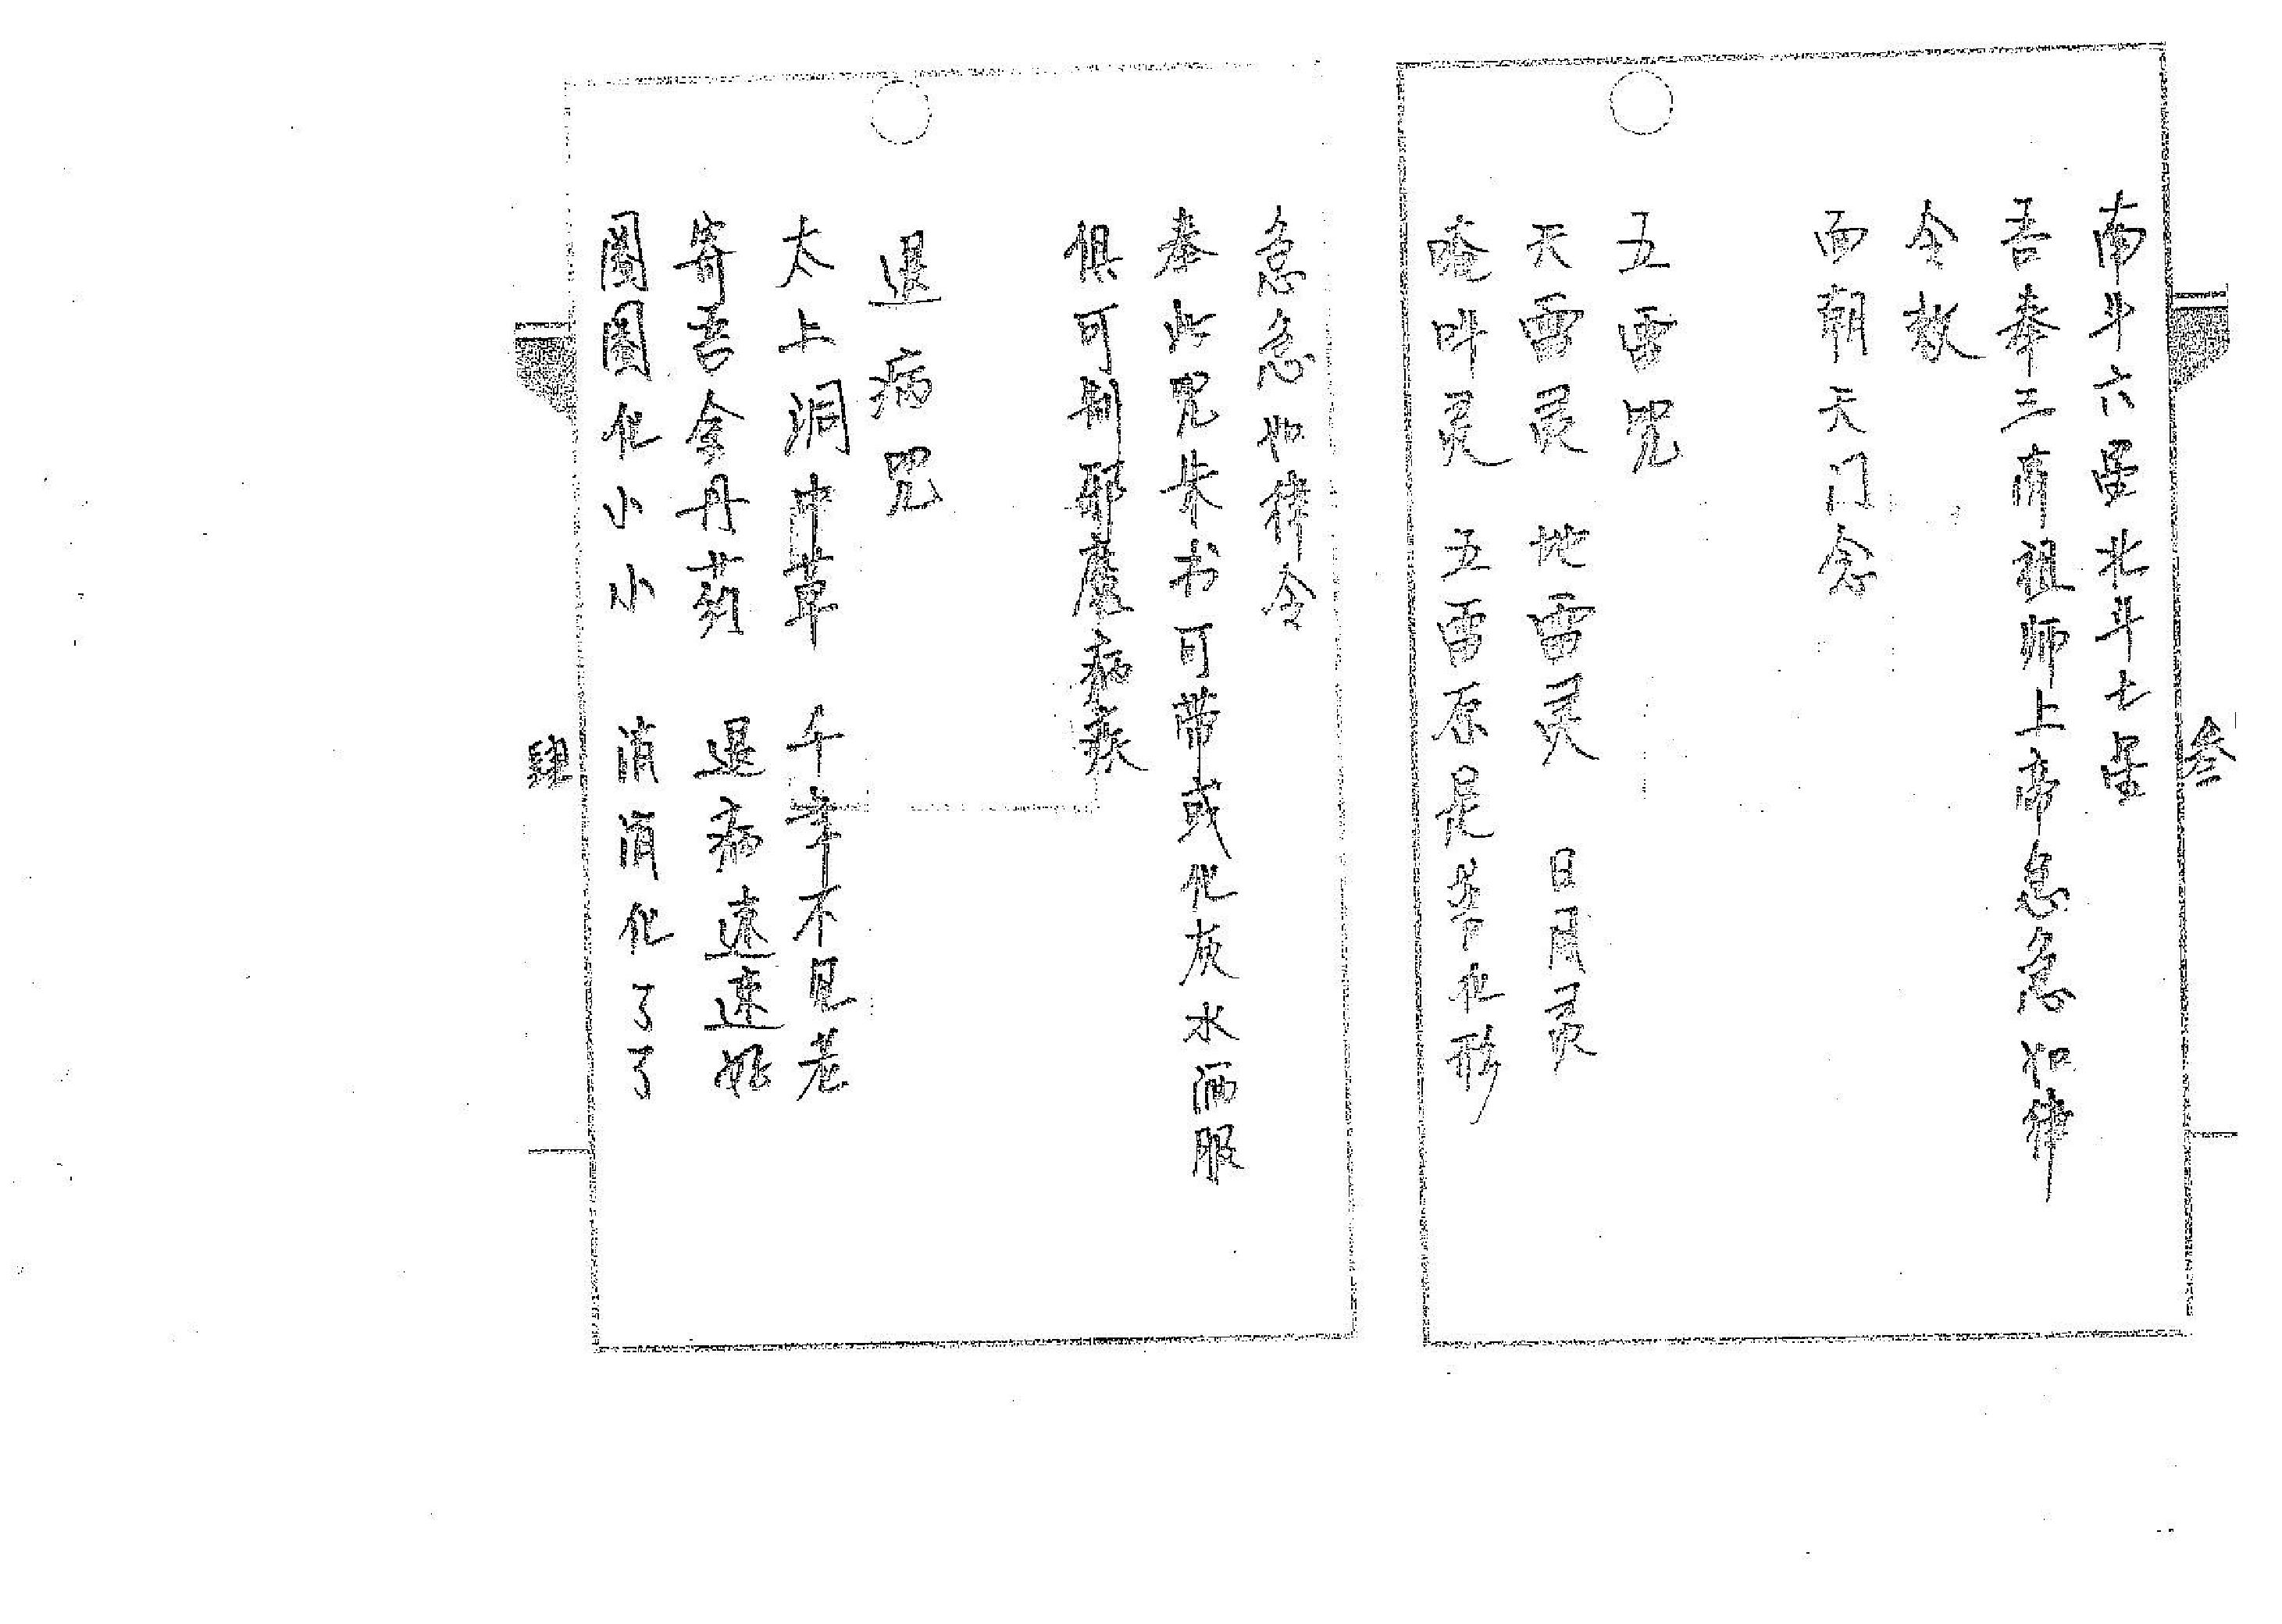 叁
南斗六星北斗七星
吾奉三清祖师上帝急急如律
令敕
面朝天门念
五雷咒
天雷灵 地雷灵 日月灵
唵吽灵 五雷原是 化形
急急如律令
奉此咒朱书可带或化灰水洒服
俱可制邪魔病疾
退病咒
太上洞中草 千年不见老
寄吾金丹药 退病速速好
圈圈化小小 消消化了了
肆